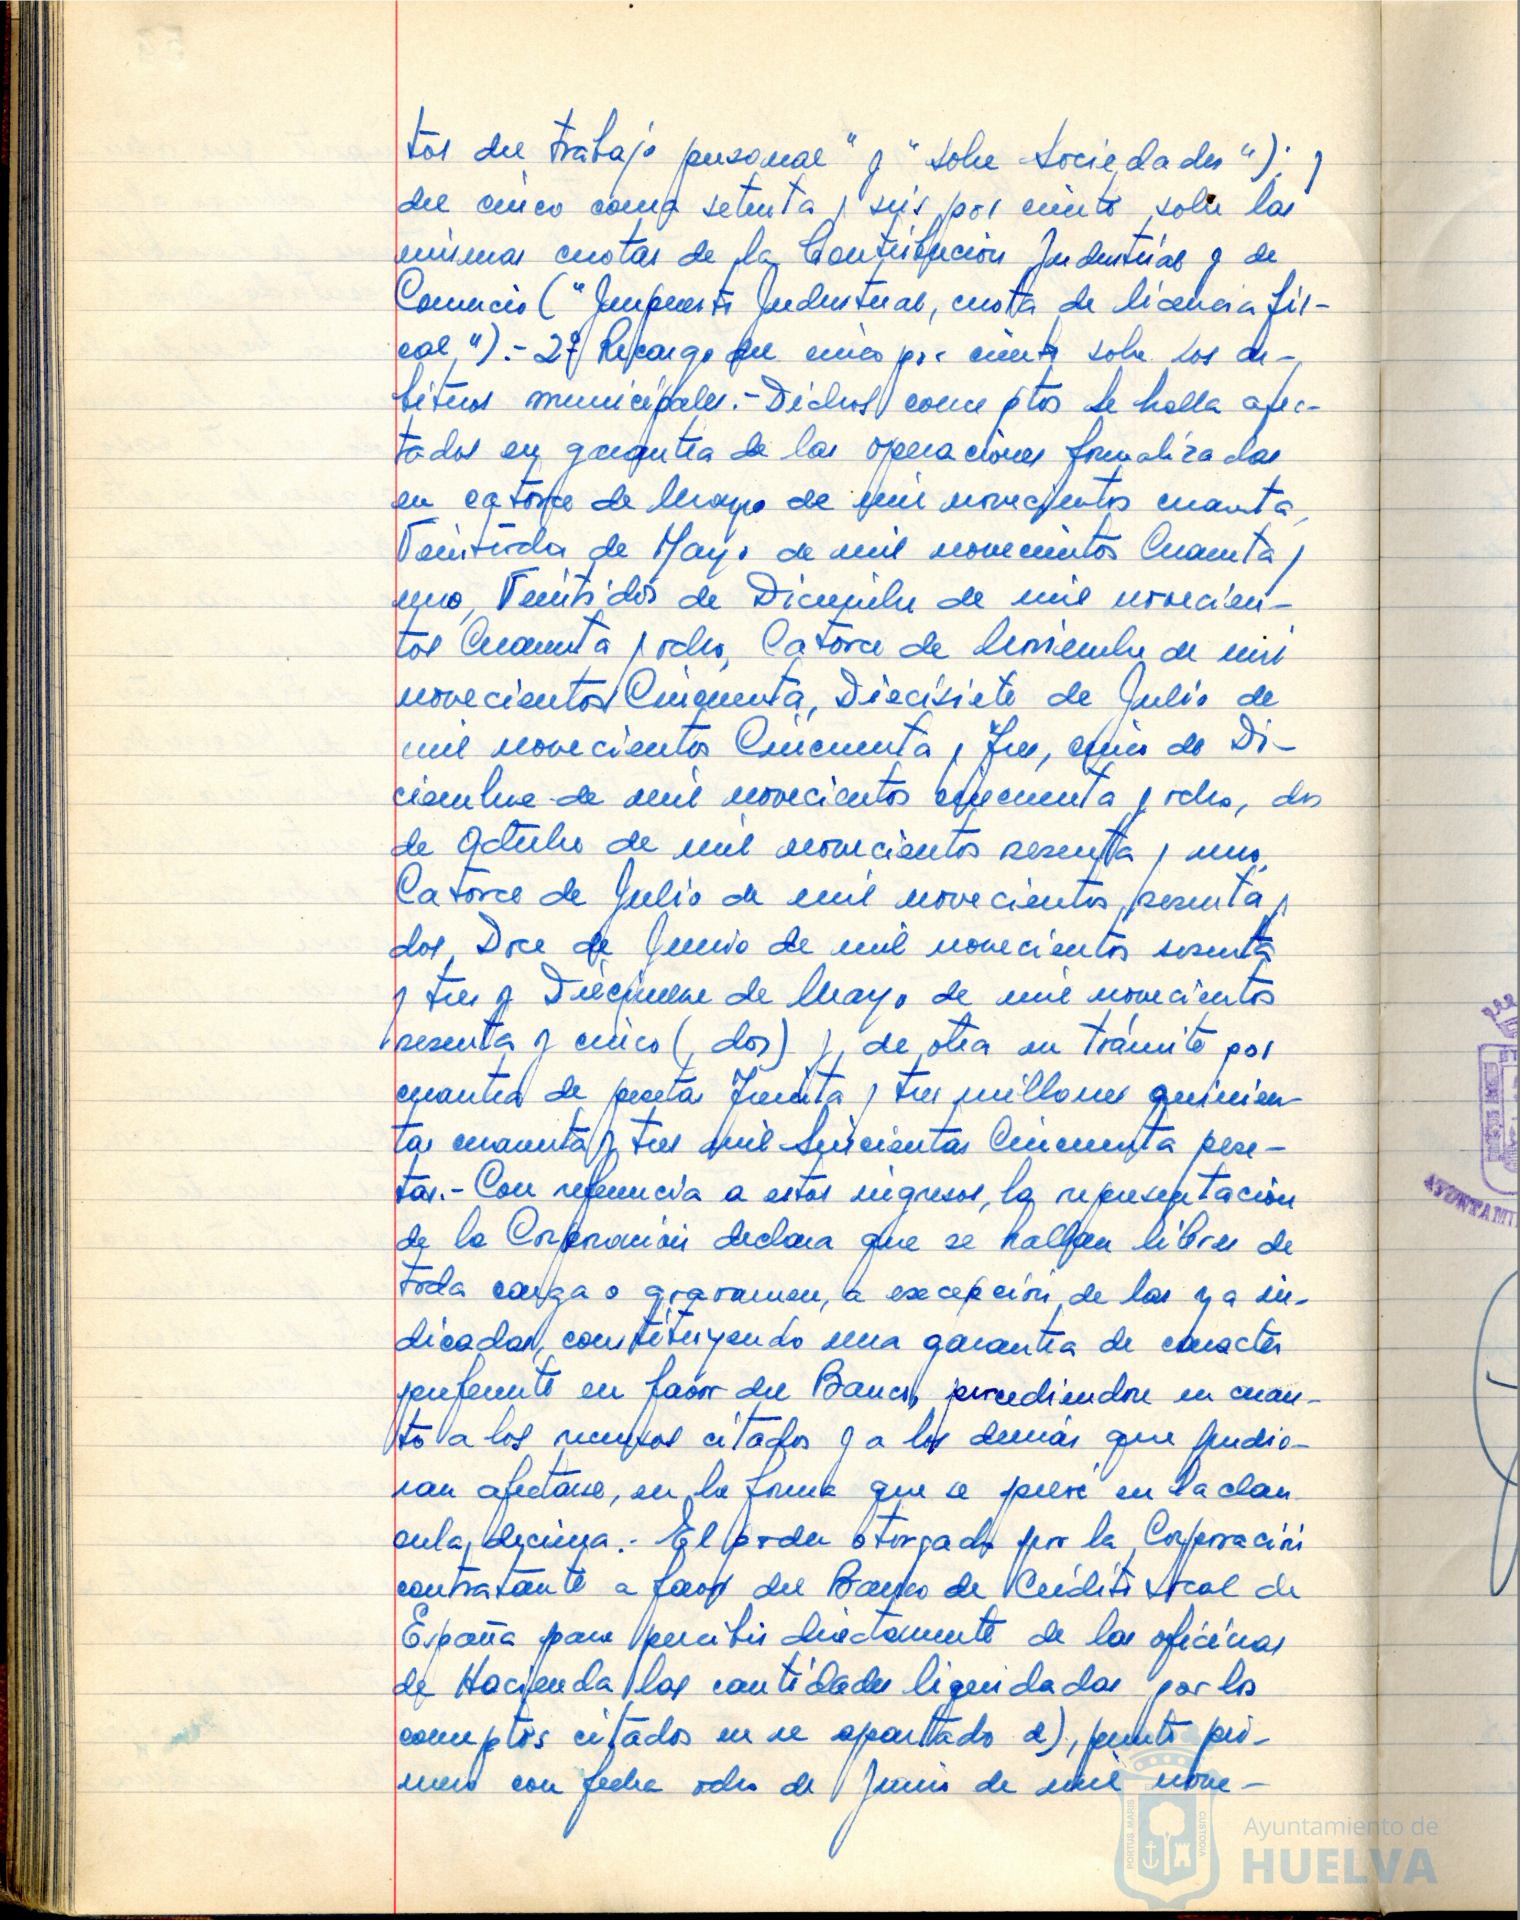 tos del trabajo personal" y "sobre Sociedades"); y
del cinco coma setenta y seis por ciento sobre las
mismas cuotas de la Contribución Industrial y de
Comercio ("Impuesto Industrial, cuota de licencia fis-
cal").- 2º Recargo del cinco por ciento sobre los ar-
bitrios municipales.- Dichos conceptos se halla afec-
tados en garantia de las operaciones formalizadas
en catorce de Mayo de mil novecientos cuarenta,
de Mayo de mil novecientos Cuarenta y
uno, Veintidós de Diciembre de mil novecien-
tos Cuarenta y ocho, Catorce de Noviembre de mil
novecientos Cincuenta, Diecisiete de Julio de
mil novecientos Cincuenta y Tres, cinco de Di-
ciembre de mil novecientos cincuenta y ocho, dos
de Octubre de mil novecientos sesenta y uno,
Catorce de Julio de mil novecientos sesenta y
dos, Doce de Junio de mil novecientos sesenta
y tres y Diecinueve de Mayo de mil novecientos
sesenta y cinco (dos) y de otra en trámite por
cuantia de pesetas Treinta y tres millones quinien-
tas cuarenta y tres mil Seiscientas Cincuenta pese-
tas.- Con referencia a estos ingresos, la representación
de la Corporación declara que se hallan libres de
toda carga o gravamen, a excepción de las ya in-
dicadas, constituyendo una garantia de caracter
preferente en favor del Banco, procediendose en cuan-
to a los recursos citados y a los demás que pudie-
ran afectarse, en la forma que se prevé en la clau
sula décima.- El poder otorgado por la Corporación
contratante a favor del Banco de Crédito Local de
España para percibir directamente de las oficinas
de Hacienda las cantidades liquidadas por los
conceptos citados en el apartado a), punto pri-
mero con fecha ocho de Junio de mil nove-
AYUNTAMI
PORTUS MARIS
CUSTODIA
Ayuntamiento de
HUELVA